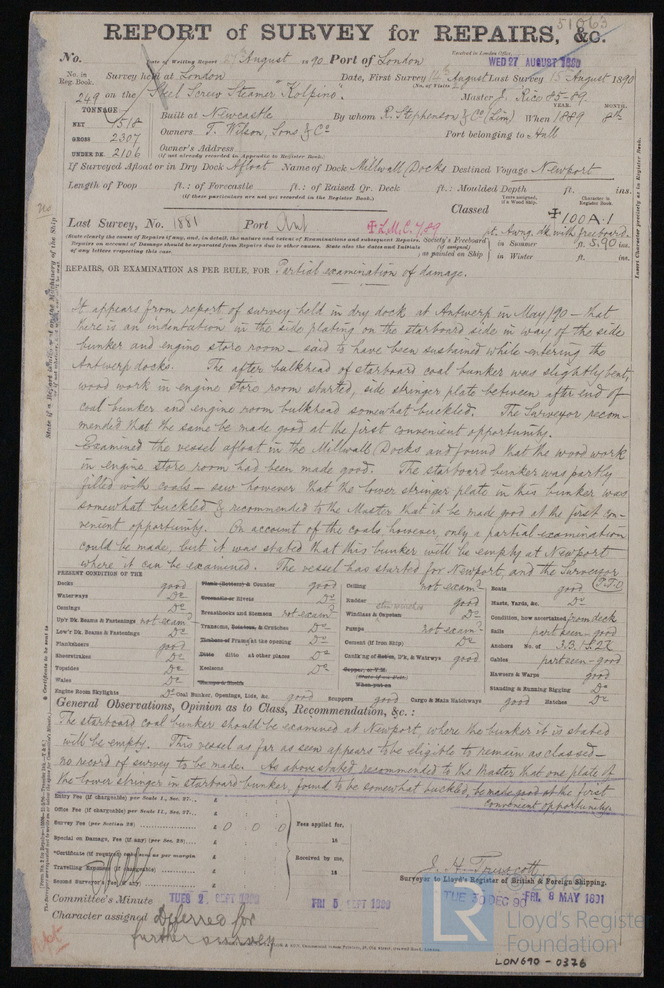 51063
REPORT of SURVEY for REPAIRS, &c.
No. Date of Writing Report August 1890 Port of London
Received in London Office, WED 27 AUGUST 1890
No. in Reg. Book. Survey held at London Date, First Survey August Last Survey 15 August 1890
(No. of Visits)
249 on the "Steel Screw Steamer "Kolpino". Master J. Rice 85-89
TONNAGE YEAR. MONTH.
NET 1518 Built at Newcastle By whom R. Stephenson & Co (Lim) When 1889 8th
GROSS 2307 Owners T. Wilson, Sons & Co Port belonging to Hull
UNDER DK 2106 Owner's Address
(If not already recorded in Appendix to Register Book.)
If Surveyed Afloat or in Dry Dock Afloat Name of Dock Millwall Docks Destined Voyage Newport
Length of Poop ft.: of Forecastle ft.: of Raised Qr. Deck ft.: Moulded Depth ft. ins.
(If these particulars are not yet recorded in the Register Book.)
Years assigned, if a Wood Ship. Character in Register Book.
Classed ✠100A.1
Last Survey, No. 1881 Port Ant ✠L.M.C. 7,89 pt. Awng. dk with freeboard
(State clearly the cause of Repairs if any, and, in detail, the nature and extent of Examinations and subsequent Repairs.
Repairs on account of Damage should be separated from Repairs due to other causes. State also the dates and Initials
of any letters respecting this case
Society's Freeboard (if assigned) as painted on Ship in Summer ft. 5.90 ins.
in Winter ft. ins.
REPAIRS, OR EXAMINATION AS PER RULE, FOR Partial examination of damage.
It appears from report of survey held in dry dock at Antwerp in May/90 – that
there is an indentation in the side plating on the starboard side in way of the side
bunker and engine store room – said to have been sustained while entering the
Antwerp docks. The after bulkhead of starboard coal bunker was slightly bent,
wood work in engine store room started, side stringer plate between after end of
coal bunker and engine room bulkhead somewhat buckled. The Surveyor recom-
mended that the same be made good at the first convenient opportunity.
Examined the vessel afloat in the Millwall Docks and found that the wood work
in engine store room had been made good. The starboard bunker was partly
filled with coals – saw however that the lower stringer plate in this bunker was
somewhat buckled & recommended to the Master that it be made good at the first con-
venient opportunity. On account of the coals however, only a partial examination
could be made, but it was stated that this bunker will be empty at Newport
where it can be examined. The vessel has started for Newport, and the Surveyor
(P.T.O)
PRESENT CONDITION OF THE
Decks good
Waterways Do
Comings Do
Up'r Dk. Beams & Fastenings not exam?
Low'r Dk. Beams & Fastenings Do
Planksheers good
Sheerstrakes Do
Topsides Do
Wales Do
Engine Room Skylights Do
Counter good
Rivets Do
Breasthooks and Stemson not exam?
Transoms, & Crutches Do
Frames at the opening Do
ditto at other places Do
Keelsons Do
Coal Bunker, Openings, Lids, &c. good
Scuppers good
Ceiling not exam?
Rudder good
Windlass & Capstan Do
Pumps not exam?
Cement (if Iron Ship) Do
Caulking of D'k, & Waterways good
Cargo & Main Hatchways good
Boats good
Masts, Yards, &c. Do
Condition, how ascertained from deck
Sails part seen - good
Anchors No. of 3.B. 1.S.2K
Cables part seen - good
Hawsers & Warps good
Standing & Running Rigging Do
Hatches Do
General Observations, Opinion as to Class, Recommendation, &c. :
The starboard coal bunker should be examined at Newport, where the bunker it is stated
will be empty. This vessel as far as seen appears to be eligible to remain as classed –
no record of survey to be made. As above stated recommended to the Master that one plate of
the lower stringer in starboard bunker, found to be somewhat buckled, be made good at the first
convenient opportunity.
Entry Fee (if chargeable) per Scale I., Sec. 27... £
Office Fee (if chargeable) per Scale II., Sec. 27... £
Survey Fee (per Section 28) £ 0 0 0
Special on Damage, Fee (if any) (per Sec. 28) £
*Certificate (if required) as per margin £
Travelling Expenses (if chargeable) £
Second Surveyor's Fee (if any) £
Fees applied for, 18
Received by me, 18
J. H. Truscott
Surveyor to Lloyd's Register of British & Foreign Shipping.
Committee's Minute TUES 2 SEPT 1890 FRI 5 SEPT 1890 TUE 30 DEC 90 FRI. 8 MAY 1891
Character assigned Deferred for
further survey
LR
Lloyd's Register
Foundation
LON690-0376